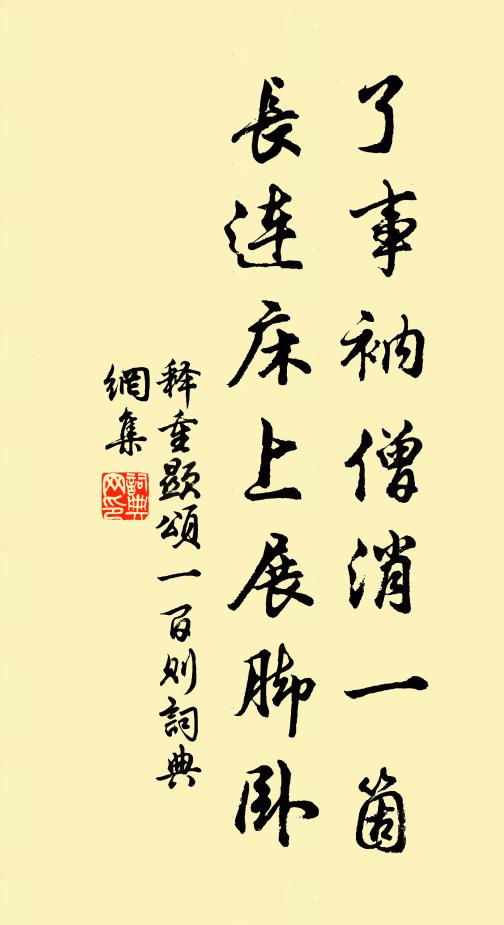 了事衲僧消一箇
長連床上展脚卧
释重顯頌一百則詞典
網集
詞典
网印